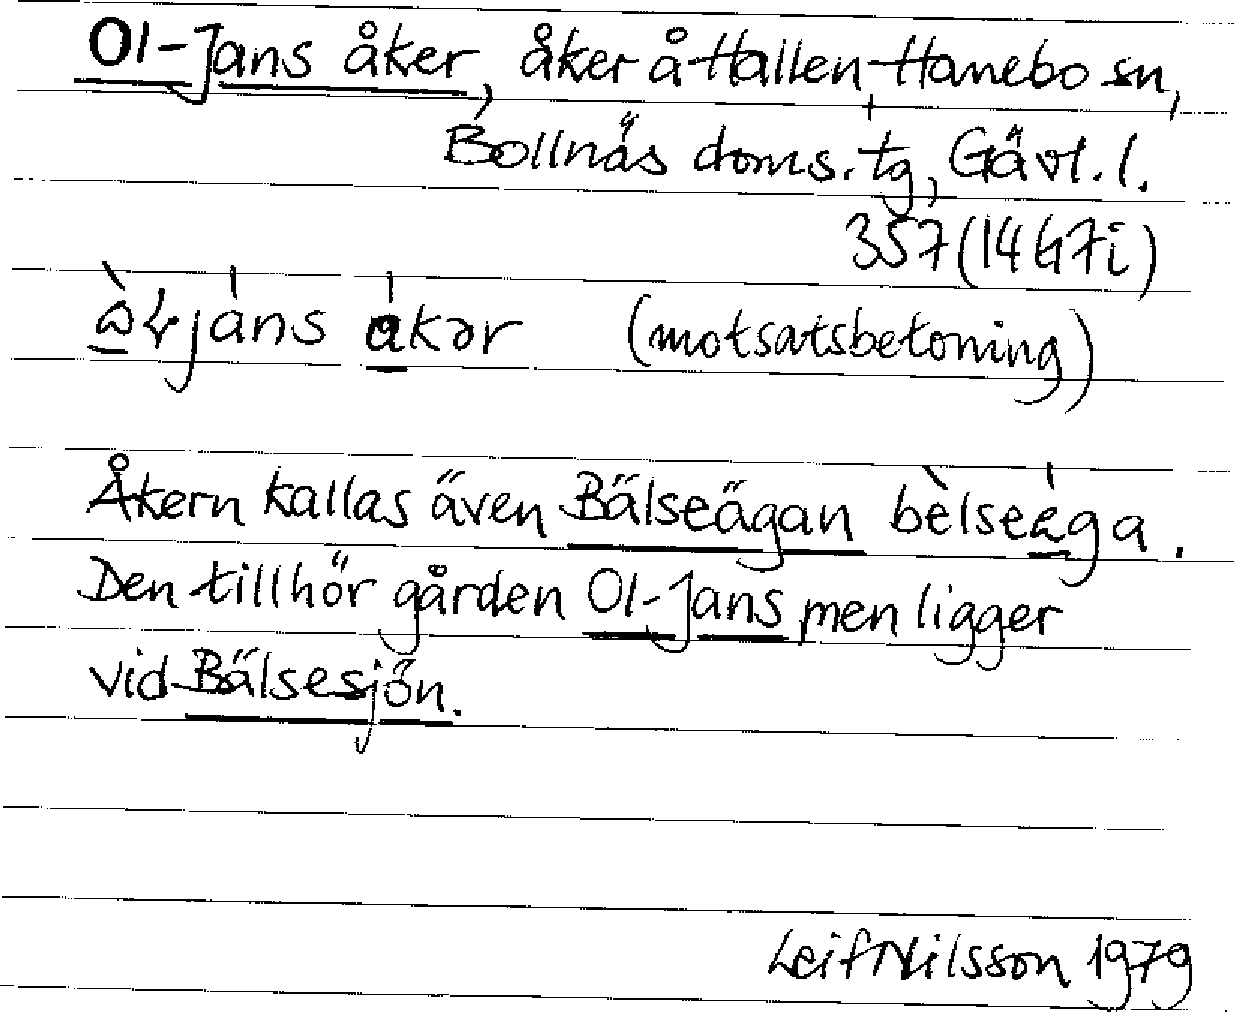 Ol-Jans åker, åker å Hallen, Hanebo sn,
Bollnäs doms. tg, Gävl. l.
357 (14G7i)
jáns ákər (motsatsbetoning)
Åkern kallas även Bälseägan bèlseǽga.
Den tillhör gården Ol-Jans, men ligger
vid Bälsesjön.
Leif Nilsson 1979